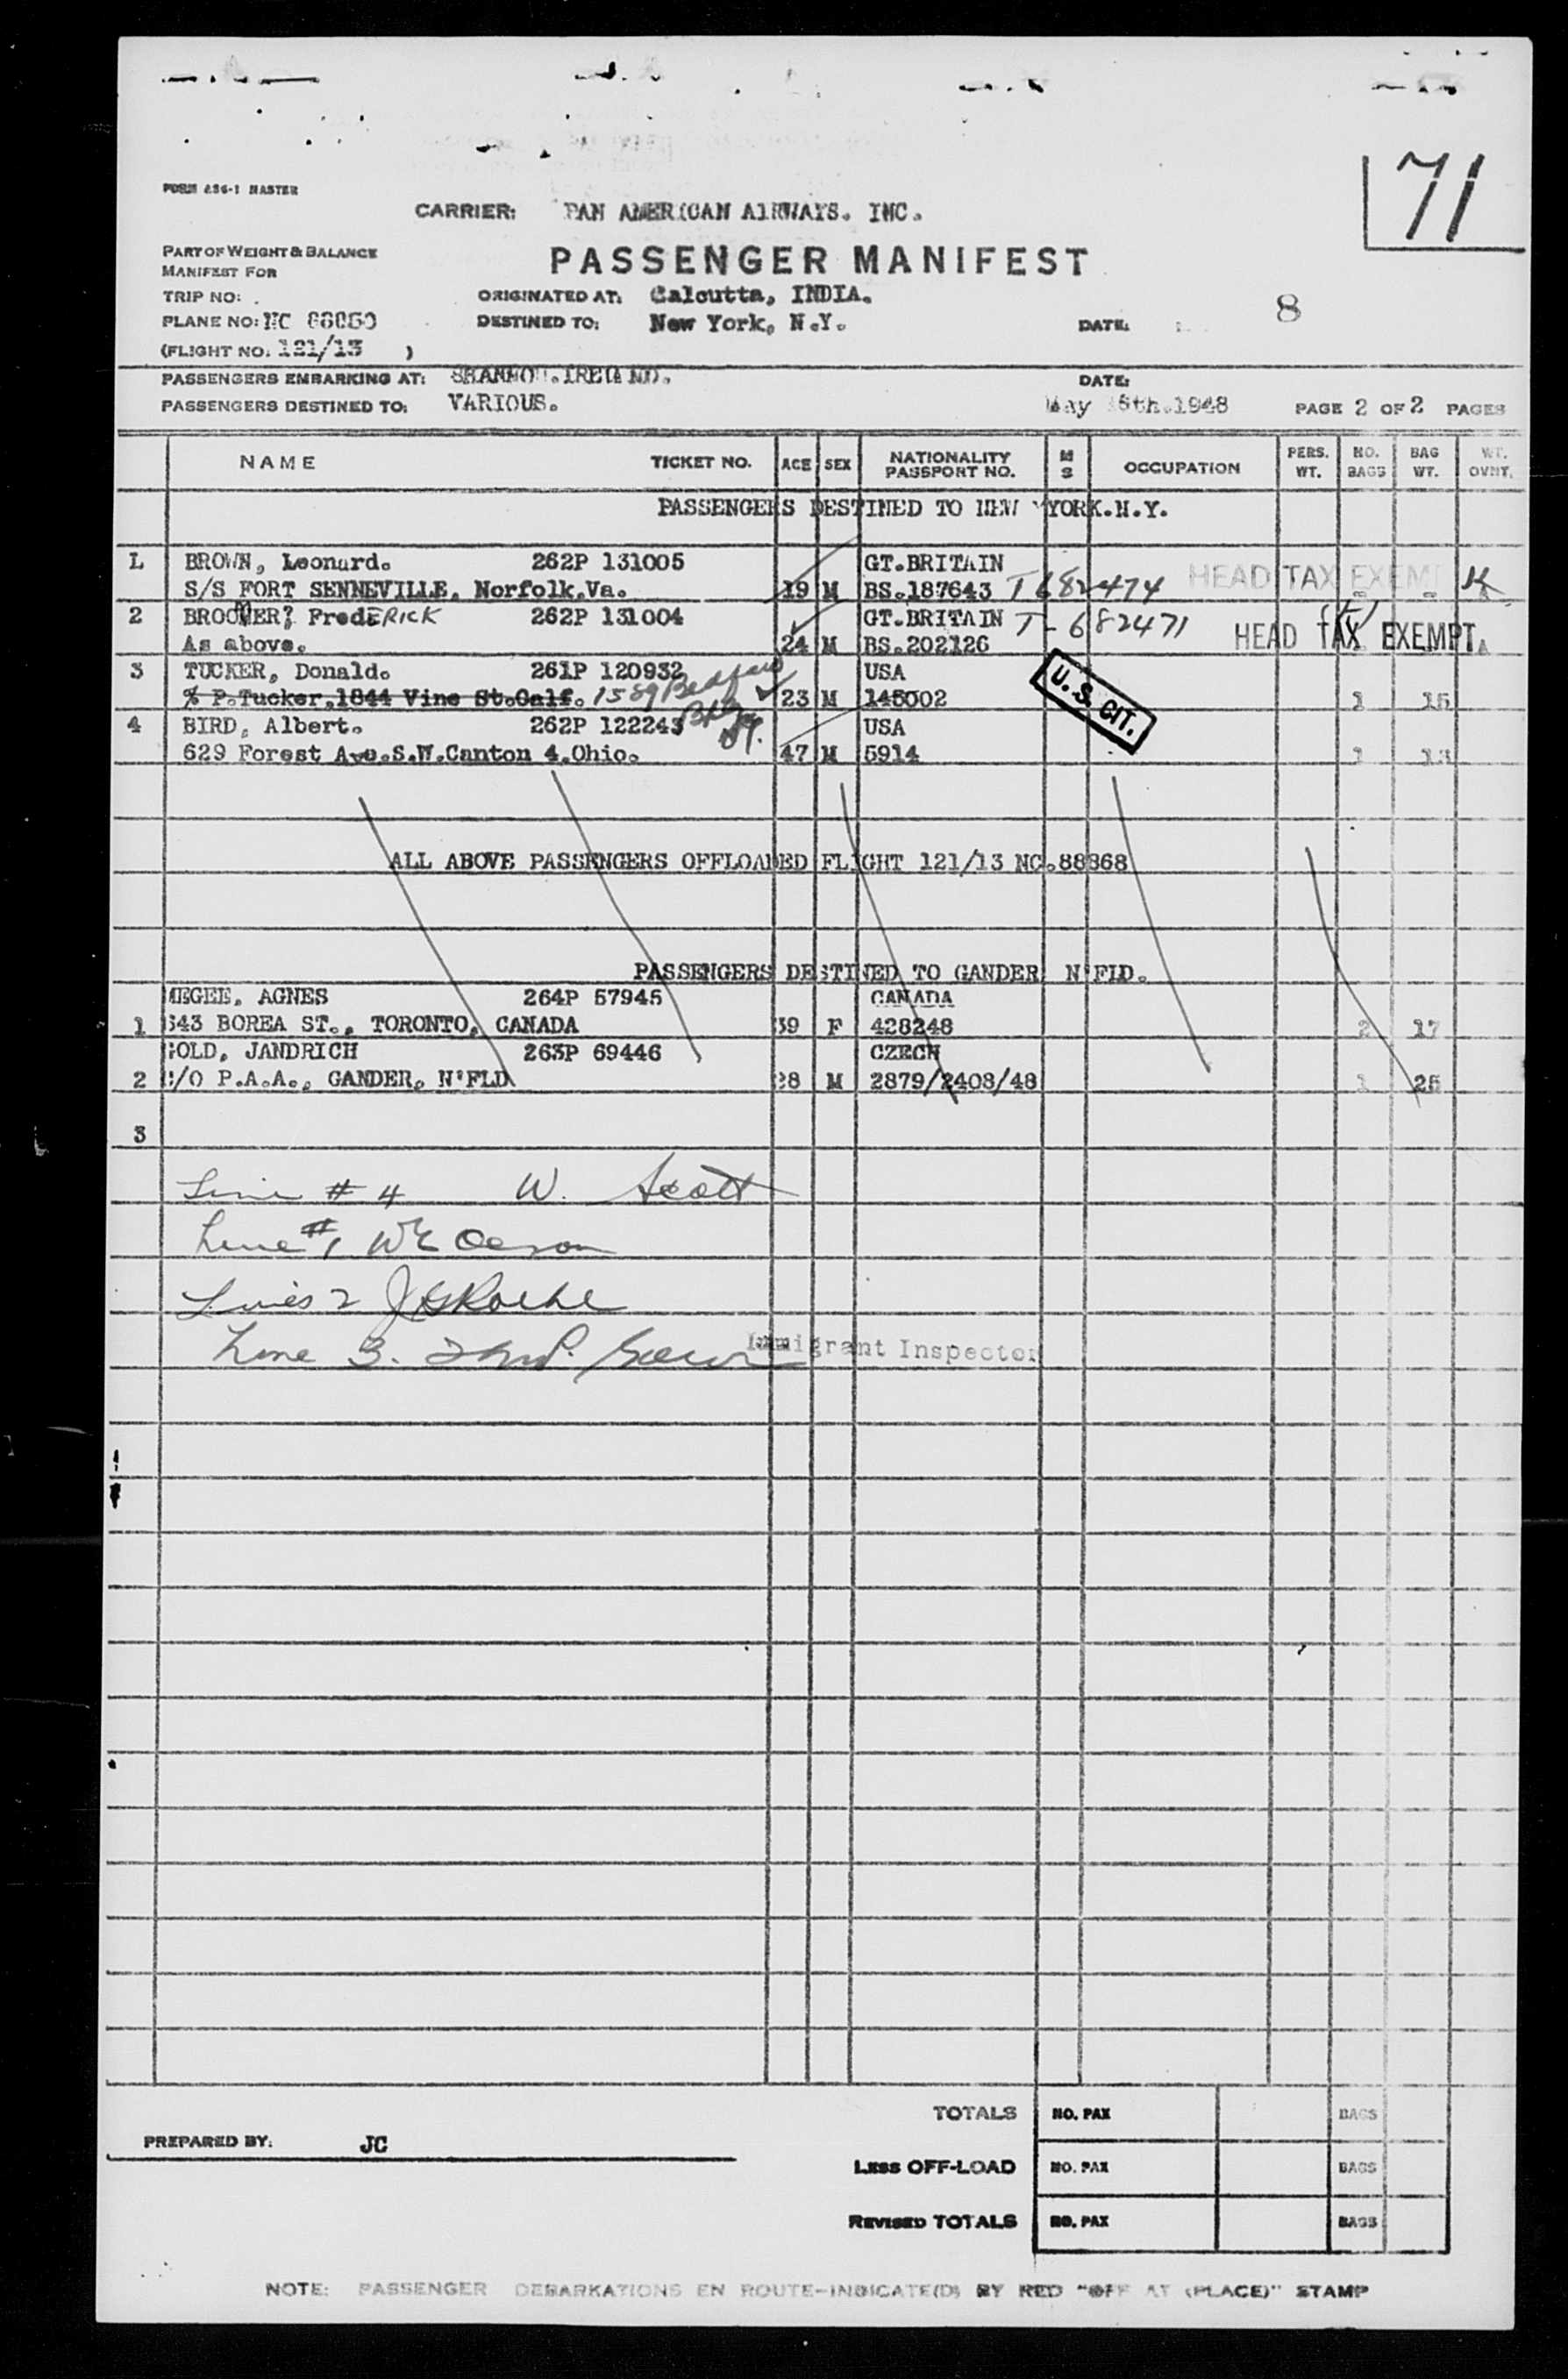 71
FORM 236-1 MASTER
CARRIER: PAN AMERICAN AIRWAYS. INC.
PART OF WEIGHT & BALANCE
MANIFEST FOR
PASSENGER MANIFEST
TRIP NO:
ORIGINATED AT: Calcutta, INDIA.
8
PLANE NO: NC
DESTINED TO: New York, N.Y.
DATE:
(FLIGHT NO: 121/13 )
PASSENGERS EMBARKING AT: SHANNON.IRELAND.
DATE:
PASSENGERS DESTINED TO: VARIOUS.
May 1948 PAGE 2 OF 2 PAGES
NAME TICKET NO. AGE SEX NATIONALITY PASSPORT NO. M S OCCUPATION PERS. WT. NO. BAGS BAG WT. WT. OVNT.
PASSENGERS DESTINED TO NEW YORK.N.Y.
L BROWN, Leonard. 262P 131005 GT.BRITAIN
S/S FORT SENNEVILLE, Norfolk.Va. 19 M BS.187643 T 682474 HEAD TAX EXEMPT
2 FredERICK 262P 131004 GT.BRITAIN T-682471 HEAD TAX EXEMPT
As above. 24 M BS.202126
3 TUCKER, Donald. 261P 120932 USA U.S. CIT.
% P.Tucker,1844 Vine St.Calf. 1589 Bedford 23 M 145002 1 15
4 BIRD, Albert. 262P 122243 USA
629 Forest Ave.S.W.Canton 4.Ohio. 47 M 5914 1
ALL ABOVE PASSENGERS OFFLOADED FLIGHT 121/13 NC.88868
PASSENGERS DESTINED TO GANDER N'FLD.
MEGEE, AGNES 264P 57945 CANADA
1 543 BOREA ST., TORONTO, CANADA 39 F 428248 2 17
GOLD, JANDRICH 263P 69446 CZECH
2 C/O P.A.A., GANDER, N'FLD 28 M 2879/2408/48 1 25
3
Line # 4 W. Scott
Line #1
Lines 2
Line 3. Immigrant Inspector
TOTALS NO. PAX BAGS
PREPARED BY: JC
LESS OFF-LOAD NO. PAX BAGS
REVISED TOTALS NO. PAX BAGS
NOTE: PASSENGER DEBARKATIONS EN ROUTE-INDICATE(D) BY RED "OFF AT (PLACE)" STAMP